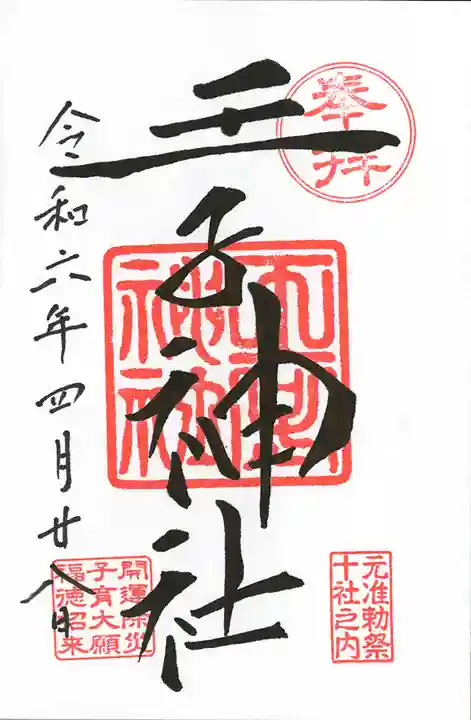 奉拝
王子神社
元准勅祭
十社之内
開運除災
子育大願
福徳招来
令和六年四月廿八日